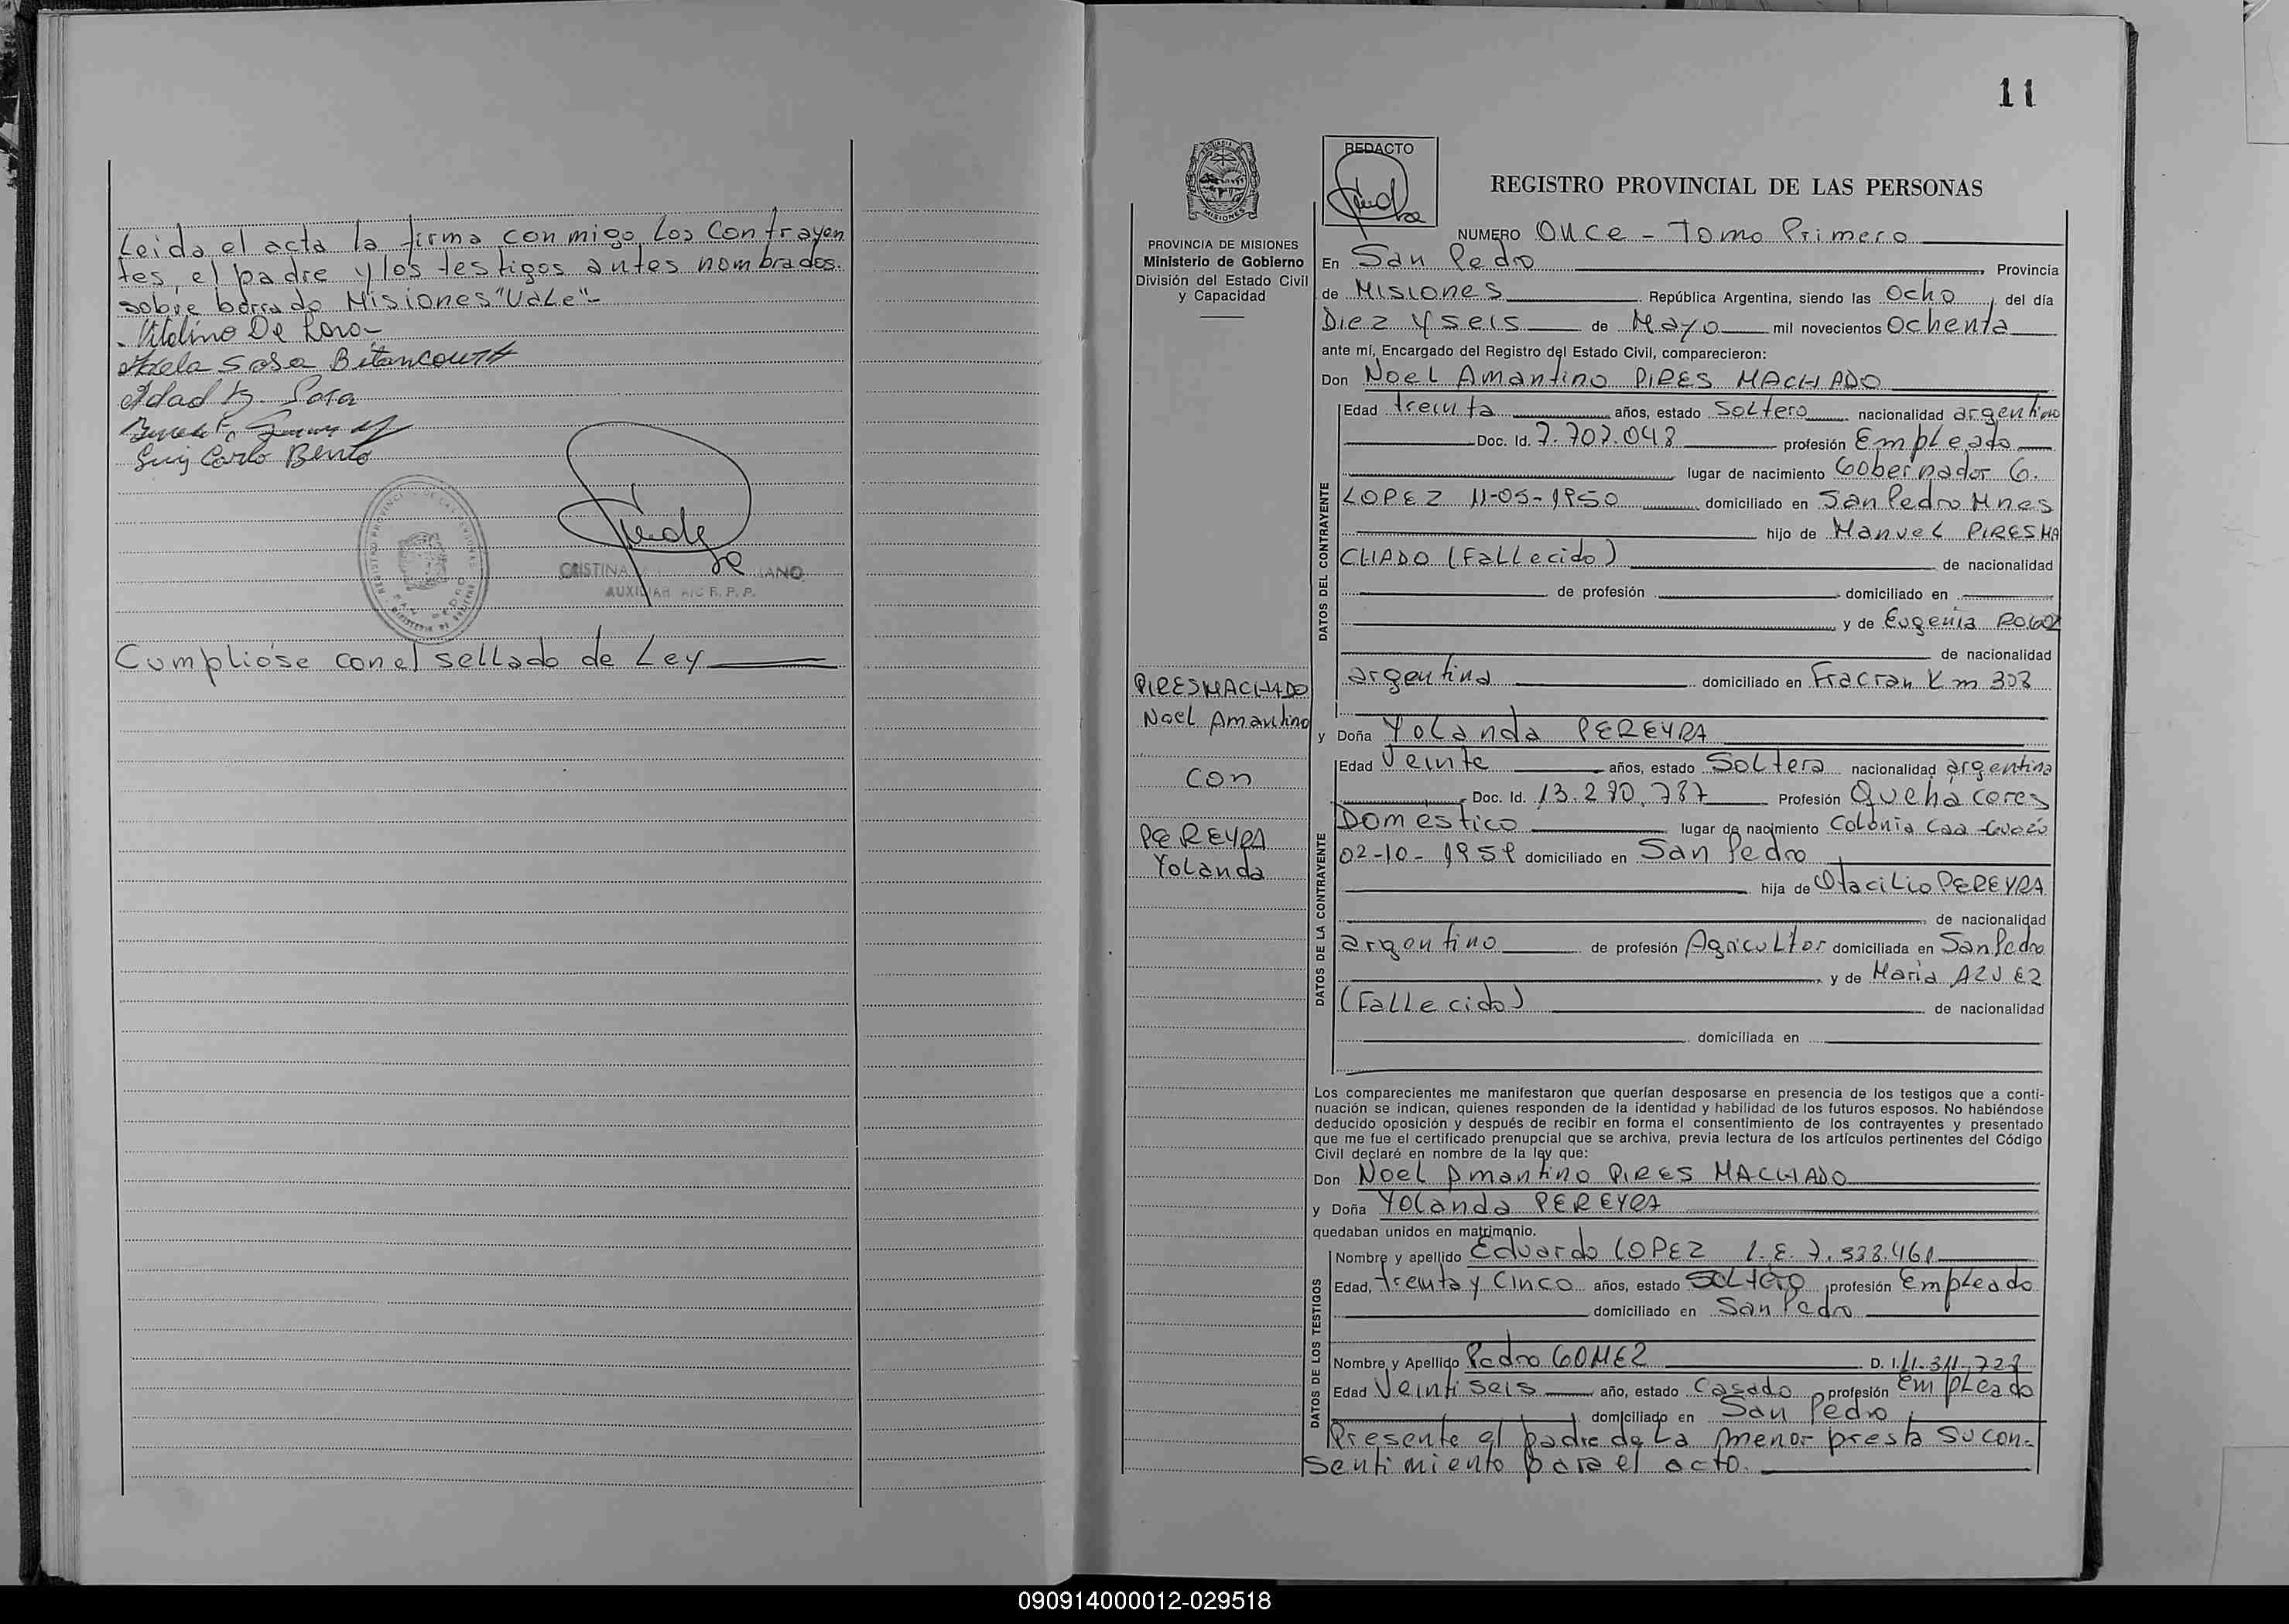 Leida el acta la firma con migo los Contrayen
tes, el padre y los testigos antes nombrados.
sobre borrado Misiones "Vale"-
Adela Sosa Bitancourt
Luiz Carlo Bento
CRISTINA ANO
AUXILIAR A/C R. P. P.
Cumpliose con el sellado de Ley
11
REDACTO
REGISTRO PROVINCIAL DE LAS PERSONAS
PROVINCIA DE MISIONES
Ministerio de Gobierno
División del Estado Civil
y Capacidad
NUMERO Once - Tomo Primero
En San Pedro Provincia
de Misiones República Argentina, siendo las Ocho, del día
Diez y seis de Mayo mil novecientos Ochenta
ante mí, Encargado del Registro del Estado Civil, comparecieron:
Don Noel Amantino PIRES MACHADO
DATOS DEL CONTRAYENTE
Edad treinta años, estado Soltero nacionalidad argentino
Doc. Id. 7.707.048 profesión Empleado
lugar de nacimiento Gobernador G.
LOPEZ 11-05-1950 domiciliado en San Pedro Mnes
hijo de Manuel PIRES MA
CHADO (Fallecido) de nacionalidad
de profesión domiciliado en
y de Eugenia
de nacionalidad
argentina domiciliado en Fracran Km 303
PIRES MACHADO
Noel Amantino
con
PEREYRA
Yolanda
y Doña Yolanda PEREYRA
DATOS DE LA CONTRAYENTE
Edad Veinte años, estado Soltera nacionalidad argentina
Doc. Id. 13.290.787 Profesión Quehaceres
Domestico lugar de nacimiento Colonia Caa-
02-10-1959 domiciliado en San Pedro
hija de Otacilio PEREYRA
de nacionalidad
argentino de profesión Agricultor domiciliada en San Pedro
y de Maria
(Fallecido) de nacionalidad
domiciliada en
Los comparecientes me manifestaron que querían desposarse en presencia de los testigos que a conti-
nuación se indican, quienes responden de la identidad y habilidad de los futuros esposos. No habiéndose
deducido oposición y después de recibir en forma el consentimiento de los contrayentes y presentado
que me fue el certificado prenupcial que se archiva, previa lectura de los artículos pertinentes del Código
Civil declaré en nombre de la ley que:
Don Noel Amantino PIRES MACHADO
y Doña Yolanda PEREYRA
quedaban unidos en matrimonio.
DATOS DE LOS TESTIGOS
Nombre y apellido Eduardo LOPEZ L.E. 7.538.461
Edad, treinta y Cinco años, estado SOLTERO profesión Empleado
domiciliado en San Pedro
Nombre y Apellido Pedro GOMEZ D. I. 11.311.728
Edad Veinti seis año, estado Casado profesión Empleado
domiciliado en San Pedro
Presente el padre de La menor presta su con-
sentimiento para el acto.
090914000012-029518